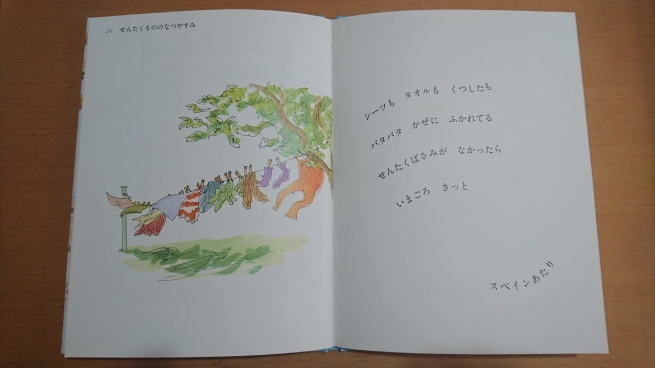 26 せんたくもののなつやすみ
シーツも タオルも くつしたも
パタパタ かぜに ふかれてる
せんたくばさみが なかったら
いまごろ きっと
スペインあたり